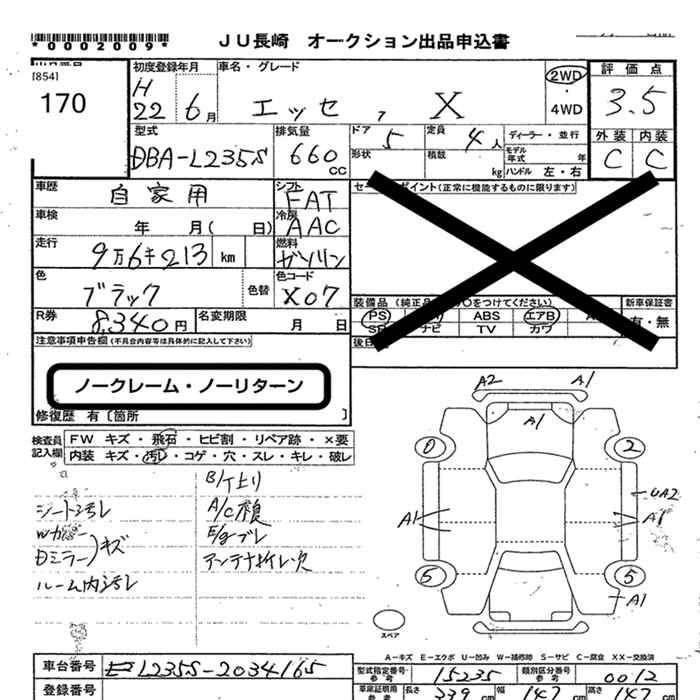 *0002009* JU長崎 オークション出品申込書
[854]
170
初度登録年月
H
22 6月
車名・グレード
エッセ , X
2WD
・
4WD
評価点
3.5
外装 内装
C C
型式
DBA-L235S
排気量
660
CC
ドア 5
定員 4人
ディーラー・並行
形状
積載 kg
モデル
年式 年
ハンドル 左・右
車歴
自家用
シフト
FAT
車検 年 月( 日)
冷房
AAC
走行
9万6千213 km
燃料
ガソリン
色
ブラック
色替
色コード
X07
R券
8,340円
名変期限
月 日
ポイント(正常に機能するものに限ります)
装備品 (純正品 ○をつけてください)
新車保証書
有・無
PS ABS エアB
ナビ TV カワ
後日
注意事項申告欄 (不具合内容等は具体的に記入して下さい)
ノークレーム・ノーリターン
修復歴 有〔箇所 〕
検査員
記入欄
FW キズ・飛石・ヒビ割・リペア跡・×要
内装 キズ・汚レ・コゲ・穴・スレ・キレ・破レ
シート汚レ
Wカバー
Dミラー)キズ
ルーム内汚レ
A/C
E/gブレ
アンテナ折レ欠
A2 A1
A1
0 2
A1
UA2
A1
5 5
A1
スペア
A-キズ E-エクボ U-凹み W-補修跡 S-サビ C-腐食 XX-交換済
車台番号
L235S-2034165
登録番号
型式指定番号
参考
15235
類別区分番号
参考
0012
車庫証明用
参考
長さ 339 cm
幅 147 cm
高さ 147 cm